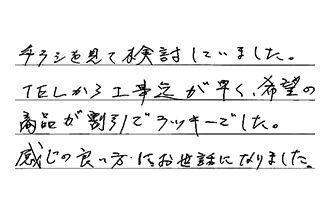 チラシを見て検討していました。
TELから工事迄が早く、希望の
商品が割引でラッキーでした。
感じの良い方にお世話になりました。